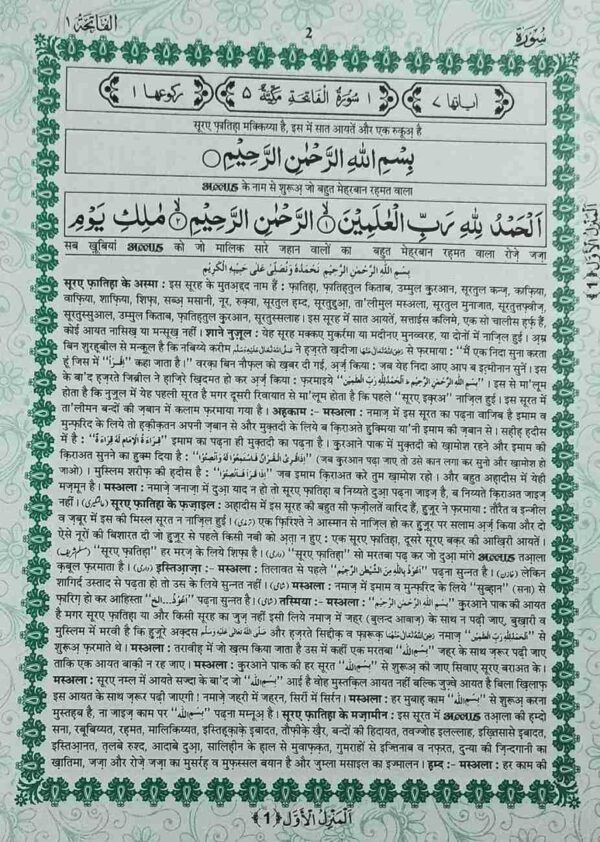 سُورَة 2 الفَاتِحَة ١
اٰیاتها ٧ ١ سُوْرَةُ الْفَاتِحَةِ مَكِّيَّةٌ ٥ ركوعها ١
सूरए फ़ातिहा मक्किय्या है, इस में सात आयतें और एक रुकूअ़ है
بِسْمِ اللّٰهِ الرَّحْمٰنِ الرَّحِيْمِ
अल्लाह के नाम से शुरूअ़ जो बहुत मेहरबान रहमत वाला
اَلْحَمْدُ لِلّٰهِ رَبِّ الْعٰلَمِيْنَ ۙ﴿١﴾ الرَّحْمٰنِ الرَّحِيْمِ ۙ﴿٢﴾ مٰلِكِ يَوْمِ
सब ख़ूबियां अल्लाह को जो मालिक सारे जहान वालों का बहुत मेहरबान रहमत वाला रोज़े जज़ा
بِسْمِ اللّٰهِ الرَّحْمٰنِ الرَّحِيْمِ نَحْمَدُهٗ وَنُصَلِّيْ عَلٰى حَبِيْبِهِ الْكَرِيْمِ
सूरए फ़ातिहा के अस्मा : इस सूरह के मुतअ़द्दद नाम हैं : फ़ातिहा, फ़ातिहतुल किताब, उम्मुल क़ुरआन, सूरतुल कन्ज़, काफ़िया,
वाफ़िया, शाफ़िया, शिफ़ा, सब्अ़ मसानी, नूर, रुक़्या, सूरतुल हम्द, सूरतुद्दुआ़, ता'लीमुल मस्अला, सूरतुल मुनाजात, सूरतुत्तफ़्वीज़,
सूरतुस्सुआल, उम्मुल किताब, फ़ातिहतुल क़ुरआन, सूरतुस्सलाह। इस सूरह में सात आयतें, सत्ताईस कलिमे, एक सो चालीस हर्फ़ हैं,
कोई आयत नासिख़ या मन्सूख़ नहीं। शाने नुज़ूल : येह सूरह मक्कए मुकर्रमा या मदीनए मुनव्वरह, या दोनों में नाज़िल हुई। अ़म्र
बिन शुरह़बील से मन्क़ूल है कि नबिय्ये करीम صلى الله تعالى عليه وسلم ने हज़रते ख़दीजा رضى الله تعالى عنها से फ़रमाया : "मैं एक निदा सुना करता
हूं जिस में "اِقْرَأْ" कहा जाता है।" वरक़ा बिन नौफ़ल को ख़बर दी गई, अ़र्ज़ किया : जब येह निदा आए आप ब इत्मीनान सुनें। इस
के बा'द हज़रते जिब्रील ने हाज़िरे ख़िदमत हो कर अ़र्ज़ किया : फ़रमाइये "بِسْمِ اللّٰهِ الرَّحْمٰنِ الرَّحِيْمِ ۞ اَلْحَمْدُ لِلّٰهِ رَبِّ الْعٰلَمِيْنَ"। इस से मा'लूम
होता है कि नुज़ूल में येह पहली सूरत है मगर दूसरी रिवायात से मा'लूम होता है कि पहले "सूरए इक़्रअ" नाज़िल हुई। इस सूरत में
ता'लीमन बन्दों की ज़बान में कलाम फ़रमाया गया है। अह़काम :- मस्अला : नमाज़ में इस सूरत का पढ़ना वाजिब है इमाम व
मुन्फ़रिद के लिये तो ह़क़ीक़तन अपनी ज़बान से और मुक़्तदी के लिये ब क़िराअते हुक्मिया या'नी इमाम की ज़बान से। सह़ीह़ ह़दीस
में है : "قِرَاءَةُ الْاِمَامِ لَهٗ قِرَاءَةٌ" इमाम का पढ़ना ही मुक़्तदी का पढ़ना है। क़ुरआने पाक में मुक़्तदी को ख़ामोश रहने और इमाम की
क़िराअत सुनने का हुक्म दिया है : "وَاِذَا قُرِئَ الْقُرْاٰنُ فَاسْتَمِعُوْا لَهٗ وَاَنْصِتُوْا" (जब क़ुरआन पढ़ा जाए तो उसे कान लगा कर सुनो और ख़ामोश हो
जाओ)। मुस्लिम शरीफ़ की ह़दीस है : "اِذَا قَرَاَ فَاَنْصِتُوْا" जब इमाम क़िराअत करे तुम ख़ामोश रहो। और बहुत अह़ादीस में येही
मज़्मून है। मस्अला : नमाज़े जनाज़ा में दुआ़ याद न हो तो सूरए फ़ातिहा ब निय्यते दुआ़ पढ़ना जाइज़ है, ब निय्यते क़िराअत जाइज़
नहीं। (عالمگیری) सूरए फ़ातिहा के फ़ज़ाइल : अह़ादीस में इस सूरह की बहुत सी फ़ज़ीलतें वारिद हैं, हुज़ूर ने फ़रमाया : तौरैत व इन्जील
व ज़बूर में इस की मिस्ल सूरत न नाज़िल हुई। (ترمذی) एक फ़िरिश्ते ने आस्मान से नाज़िल हो कर हुज़ूर पर सलाम अ़र्ज़ किया और दो
ऐसे नूरों की बिशारत दी जो हुज़ूर से पहले किसी नबी को अ़ता न हुए : एक सूरए फ़ातिहा, दूसरे सूरए बक़र की आख़िरी आयतें।
(مسلم شریف) "सूरए फ़ातिहा" हर मरज़ के लिये शिफ़ा है। (دارمی) "सूरए फ़ातिहा" सो मरतबा पढ़ कर जो दुआ़ मांगे अल्लाह तआ़ला
क़बूल फ़रमाता है। (دارمی) इस्तिआ़ज़ा :- मस्अला : तिलावत से पहले "اَعُوْذُ بِاللّٰهِ مِنَ الشَّيْطٰنِ الرَّجِيْمِ" पढ़ना सुन्नत है। (خازن) लेकिन
शागिर्द उस्ताद से पढ़ता हो तो उस के लिये सुन्नत नहीं। (شامی) मस्अला : नमाज़ में इमाम व मुन्फ़रिद के लिये "सुब्ह़ान" (सना) से
फ़ारिग़ हो कर आहिस्ता "اَعُوْذُ... الخ" पढ़ना सुन्नत है। (شامی) तस्मिया :- मस्अला : "بِسْمِ اللّٰهِ الرَّحْمٰنِ الرَّحِيْمِ" क़ुरआने पाक की आयत
है मगर सूरए फ़ातिहा या और किसी सूरह का जुज़ नहीं इसी लिये नमाज़ में जहर (बुलन्द आवाज़) के साथ न पढ़ी जाए, बुख़ारी व
मुस्लिम में मरवी है कि हुज़ूरे अक़्दस صلى الله تعالى عليه وسلم और हज़रते सिद्दीक़ व फ़ारूक़ رضى الله تعالى عنهما नमाज़ "اَلْحَمْدُ لِلّٰهِ رَبِّ الْعٰلَمِيْنَ" से
शुरूअ़ फ़रमाते थे। मस्अला : तरावीह़ में जो ख़त्म किया जाता है उस में कहीं एक मरतबा "بِسْمِ اللّٰه" जहर के साथ ज़रूर पढ़ी जाए
ताकि एक आयत बाक़ी न रह जाए। मस्अला : क़ुरआने पाक की हर सूरत "بِسْمِ اللّٰه" से शुरूअ़ की जाए सिवाए सूरए बराअत के।
मस्अला : सूरए नम्ल में आयते सज्दा के बा'द जो "بِسْمِ اللّٰه" आई है वोह मुस्तक़िल आयत नहीं बल्कि जुज़्वे आयत है बिला ख़िलाफ़
इस आयत के साथ ज़रूर पढ़ी जाएगी। नमाज़े जहरी में जहरन, सिर्री में सिर्रन। मस्अला : हर मुबाह़ काम "بِسْمِ اللّٰه" से शुरूअ़ करना
मुस्तह़ब है, ना जाइज़ काम पर "بِسْمِ اللّٰه" पढ़ना मम्नूअ़ है। सूरए फ़ातिहा के मज़ामीन : इस सूरत में अल्लाह तआ़ला की ह़म्दो
सना, रबूबिय्यत, रह़मत, मालिकिय्यत, इस्तिह़क़ाक़े इबादत, तौफ़ीक़े ख़ैर, बन्दों की हिदायत, तवज्जोह इलल्लाह, इख़्तिसासे इबादत,
इस्तिआ़नत, तलबे रुश्द, आदाबे दुआ़, सालिह़ीन के ह़ाल से मुवाफ़क़त, गुमराहों से इज्तिनाब व नफ़रत, दुन्या की ज़िन्दगानी का
ख़ातिमा, जज़ा और रोज़े जज़ा का मुसर्रह़ व मुफ़स्सल बयान है और जुम्ला मसाइल का इज्मालन। ह़म्द :- मस्अला : हर काम की
اَلْمَنْزِلُ الْاَوَّل ﴿1﴾
اَلْمَنْزِلُ الْاَوَّل ﴿1﴾